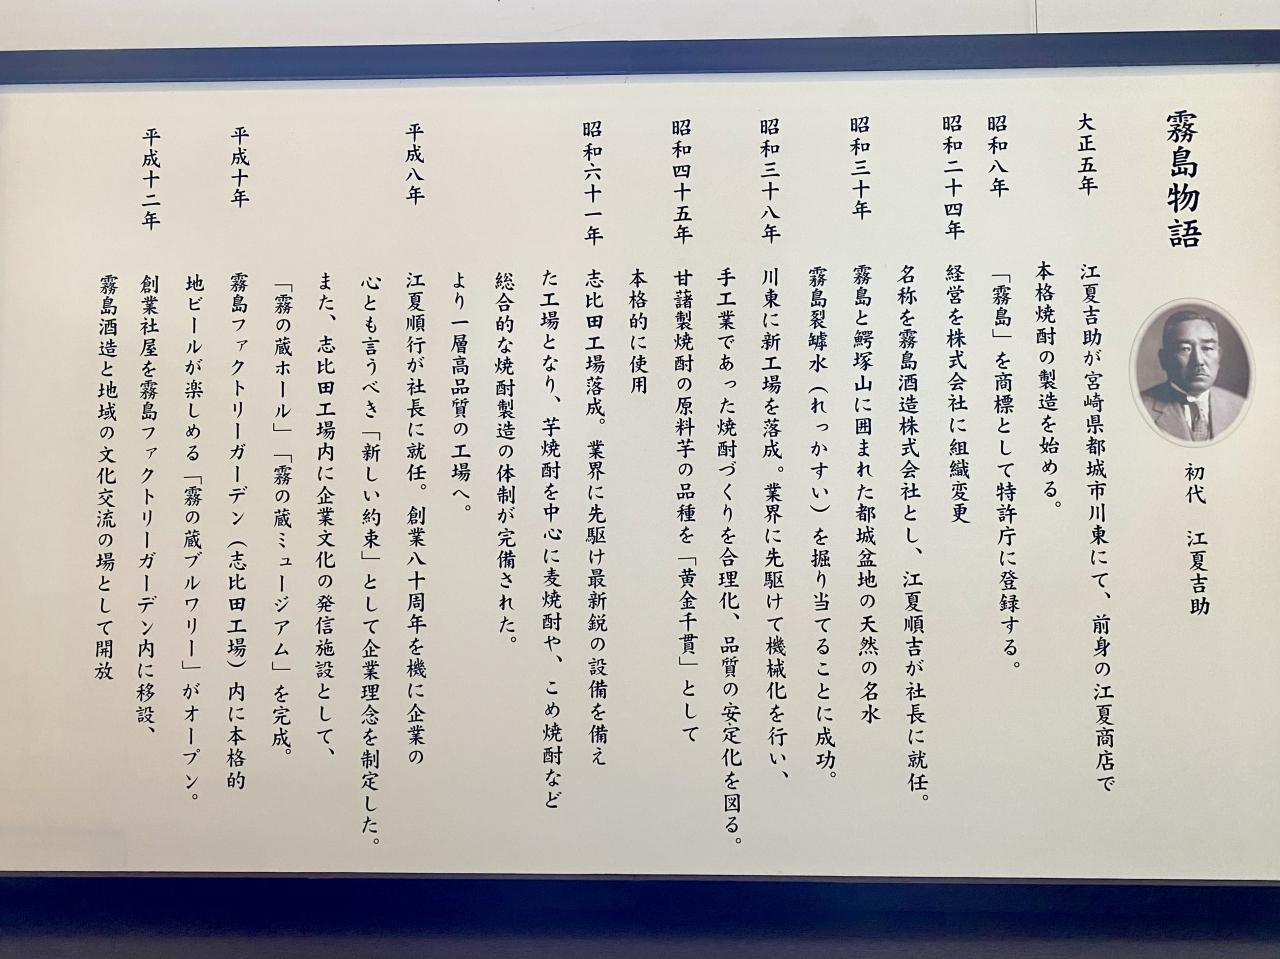 霧島物語
初代 江夏吉助
大正五年 江夏吉助が宮崎県都城市川東にて、前身の江夏商店で
本格焼酎の製造を始める。
昭和八年 「霧島」を商標として特許庁に登録する。
昭和二十四年 経営を株式会社に組織変更
名称を霧島酒造株式会社とし、江夏順吉が社長に就任。
昭和三十年 霧島と鰐塚山に囲まれた都城盆地の天然の名水
霧島裂罅水(れっかすい)を掘り当てることに成功。
昭和三十八年 川東に新工場を落成。業界に先駆けて機械化を行い、
手工業であった焼酎づくりを合理化、品質の安定化を図る。
昭和四十五年 甘藷製焼酎の原料芋の品種を「黄金千貫」として
本格的に使用
昭和六十一年 志比田工場落成。業界に先駆け最新鋭の設備を備え
た工場となり、芋焼酎を中心に麦焼酎や、こめ焼酎など
総合的な焼酎製造の体制が完備された。
より一層高品質の工場へ。
平成八年 江夏順行が社長に就任。創業八十周年を機に企業の
心とも言うべき「新しい約束」として企業理念を制定した。
また、志比田工場内に企業文化の発信施設として、
「霧の蔵ホール」「霧の蔵ミュージアム」を完成。
平成十年 霧島ファクトリーガーデン(志比田工場)内に本格的
地ビールが楽しめる「霧の蔵ブルワリー」がオープン。
平成十二年 創業社屋を霧島ファクトリーガーデン内に移設、
霧島酒造と地域の文化交流の場として開放